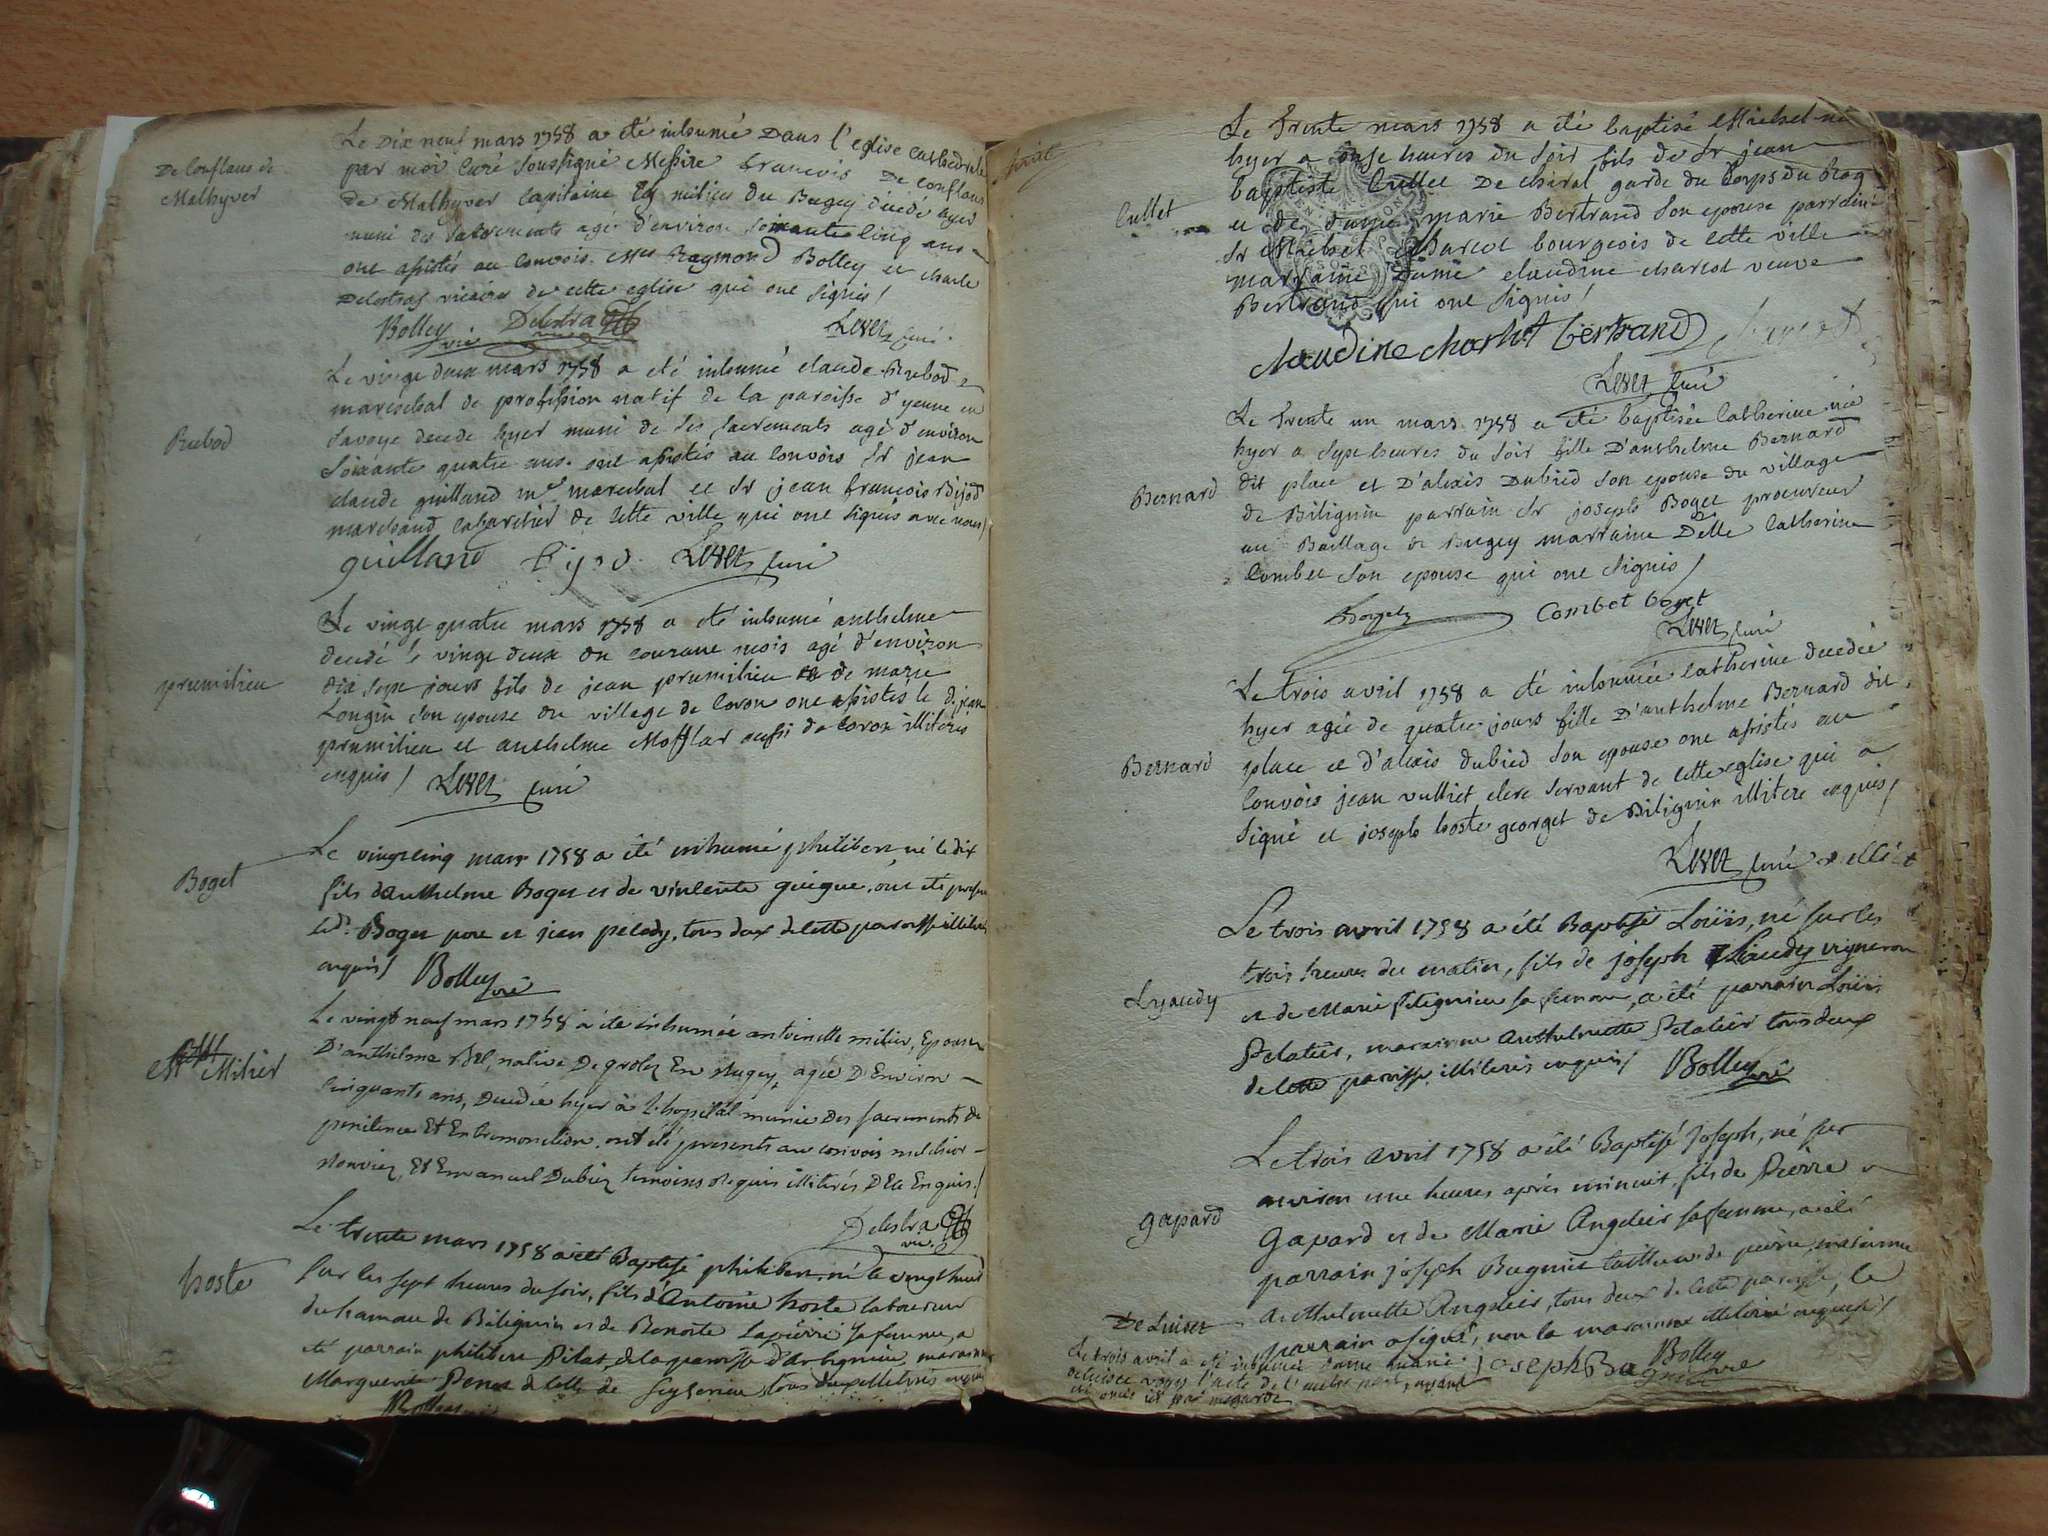 De Conflans de
Malhyver
Le Dix neuf mars 1758 a été inhumé Dans l'eglise cathedrale
par moi Curé soussigné Messire francois De Conflans
de Malhyver Capitaine milices du Bugey decedé hyer
muni des sacrements agé d'environ soixante cinq ans
ont assistés au convois Mrs Raymond Bolley et charle
Delestraz vicaires de cette eglise qui ont signés /
Bolley vic Delestraz vic Levet curé
Rubod
Le vingt deux mars 1758 a été inhumé claude Rubod
marechal de profession natif de la paroisse d'yenne en
savoye decedé hyer muni de ses sacrements agé d'environ
soixante quatre ans. ont assistés au convois Sr jean
claude guilland me marechal et Sr jean francois Bijod
marchand cabaretier de cette ville qui ont signés avec nous /
guilland Bijod Levet curé
prumilieu
Le vingt quatre mars 1758 a été inhumé anthelme
decedé le vingt deux du courant mois agé d'environ
dix sept jours fils de jean prumilieu et de marie
Longin son epouse du village de Coron ont assistés le d. jean
prumilieu et anthelme Mofflar aussi de Coron illiterés
enquis / Levet curé
Boget
Le vingt cinq mars 1758 a été inhumé philibert, né le dix
fils d'anthelme Boget et de vincente guigue, ont été presens
led. Boget pere et jean pelody, tous deux de cette paroisse illiterés
enquis / Bolley vic
Milier
Le vingt neuf mars 1758 a été inhumée antoinette milier, Epouse
D'anthelme, native De grolez En Bugey, agée D'Environ
Cinquante ans, Decedée hyer à L'hopital munie Des sacrements de
penitence Et Extremonction. ont été presents au convois melchior
Et Emanuel Dubiez temoins requis illiterés De ce Enquis /
Delestraz vic
hoste
Le trente mars 1758 a été Baptisé philibert, né le vingt huit
sur les sept heures du soir, fils d'Antoine hoste laboureur
du hameau de Bilignin et de Benoite Lapierre sa femme, a
été parrain philibert Pilat, de la paroisse d'Arbignieu, maraine
Marguerite Perret de celle de Seyserieu, tous deux illiterés enquis
Bolley vic
Cullet
Le Trente mars 1758 a été baptisé Michel né
hyer a onze heures du soir fils de Sr jean
baptiste Cullet De chival garde du Corps du Roy
et de Dame marie Bertrand son epouse parrein
Sr Michel Charcot bourgeois de cette ville
marraine Dame claudine charcot veuve
Bertrand qui ont signés /
claudine charcot bertrand
Levet curé
Bernard
Le Trente un mars 1758 a été baptisée Catherine née
hyer a sept heures du soir fille D'anthelme Bernard
dit place et D'alexis Dubied son epouse du village
de Bilignin parrain Sr joseph Boget procureur
au Baillage de Bugey marraine Delle Catherine
Combet son epouse qui ont signés /
Boget Combet boget
Levet curé
Bernard
Le trois avril 1758 a été inhumée Catherine decedée
hyer agée de quatre jours fille D'anthelme Bernard dit
place et d'alexis dubied son epouse ont assistés au
convois jean vulliet clerc servant de cette eglise qui a
signé et joseph hoste georget de Bilignin illiteré enquis /
Levet curé vulliet
Lyaudy
Le trois avril 1758 a été Baptisé Loüis, né sur les
trois heures du matin, fils de joseph Liaudy vigneron
et de Marie Setignieu sa femme, a été parrain Loüis
Pelatier, maraine Anthelmette Pelatier tous deux
de cette paroisse, illiterés enquis / Bolley vic
gapard
Le trois avril 1758 a été Baptisé Joseph, né sur
environ une heure aprés minuit, fils de Pierre
Gapard et de Marie Angelier sa femme, a été
parrain joseph Bugnier tailleur de pierre, maraine
Anthelmette Angelier, tous deux de cette paroisse, le
parrain a signé, non la maraine illiterée enquise /
joseph Bugnier Bolley vic
De Luiset
Le trois avril a été inhumée Dame marie
deluiset voyez l'acte de l'autre part, ayant
été omis ici par megarde